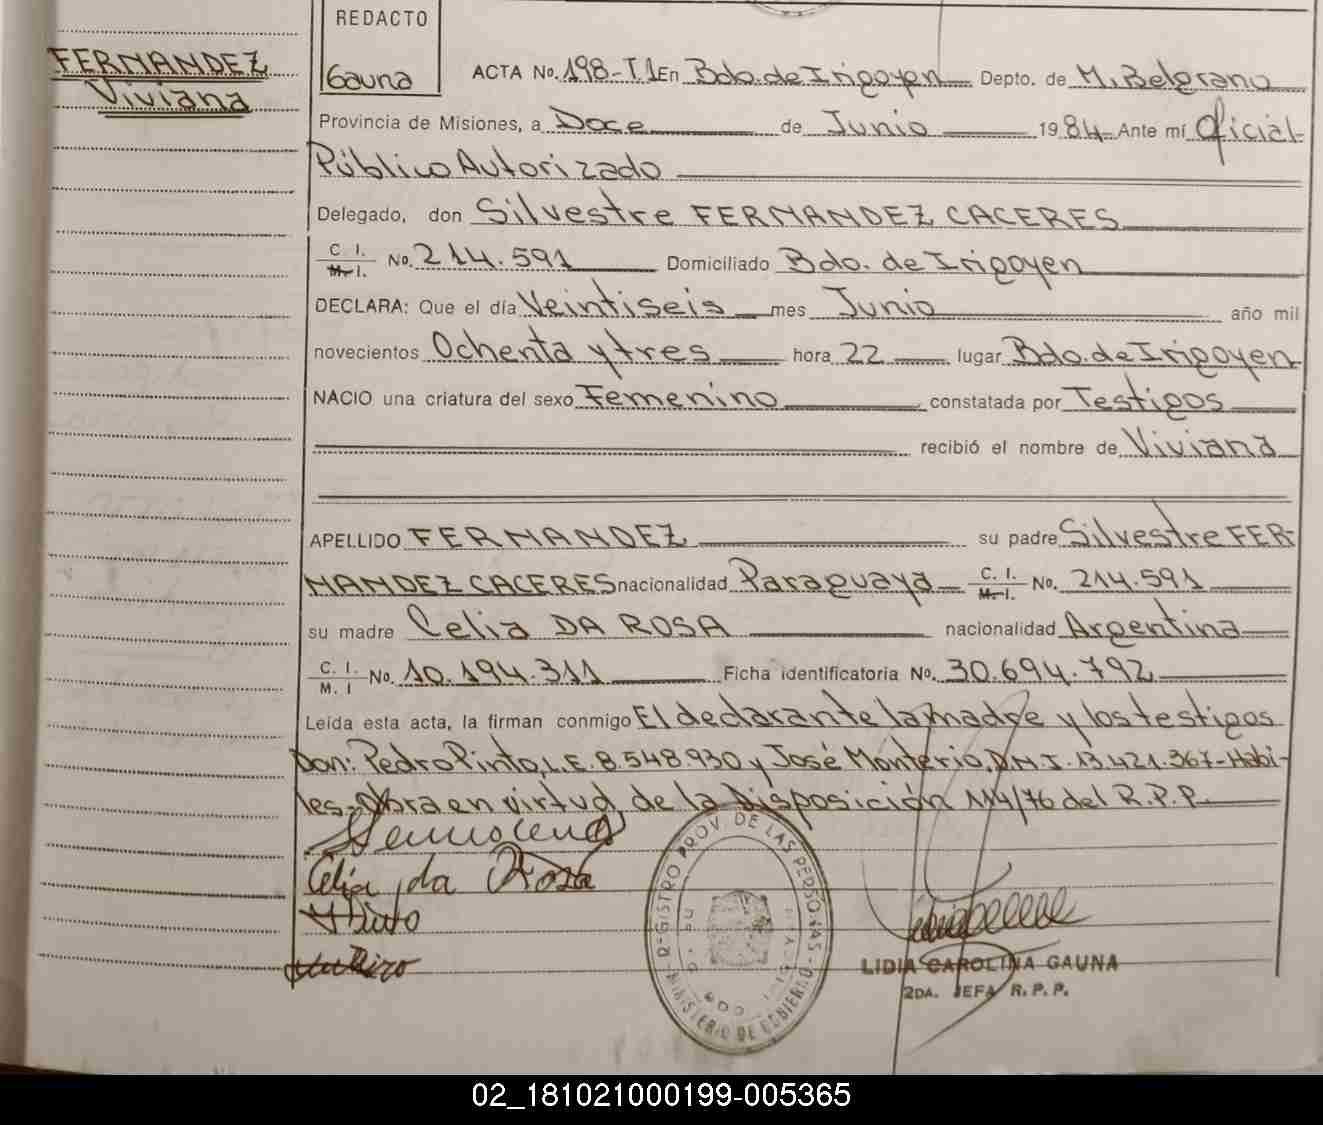 REDACTO
Gauna
FERNANDEZ
Viviana
ACTA No. 198-T.1 En Bdo. de Irigoyen Depto. de M. Belgrano
Provincia de Misiones, a Doce de Junio 1984 Ante mí Oficial
Público Autorizado
Delegado, don Silvestre FERNANDEZ CACERES
C. I. M. I. No. 214.591 Domiciliado Bdo. de Irigoyen
DECLARA: Que el día Veintiseis mes Junio año mil
novecientos Ochenta y tres hora 22 lugar Bdo. de Irigoyen
NACIO una criatura del sexo Femenino constatada por Testigos
recibió el nombre de Viviana
APELLIDO FERNANDEZ su padre Silvestre FER-
NANDEZ CACERES nacionalidad Paraguaya C. I. M. I. No. 214.591
su madre Celia DA ROSA nacionalidad Argentina
C. I. M. I No. 10.194.311 Ficha identificatoria No. 30.694.792
Leída esta acta, la firman conmigo El declarante la madre y los testigos
Don: Pedro Pinto, L.E. 8.548.930 y José Monterio, D.N.I. 13.421.367- Hábi-
les- Obra en virtud de la Disposición 114/76 del R.P.P.
Celia da Rosa
REGISTRO PROV. DE LAS PERSONAS - MINISTERIO DE GOBIERNO
LIDIA CAROLINA GAUNA
2DA. JEFA R. P. P.
02_181021000199-005365